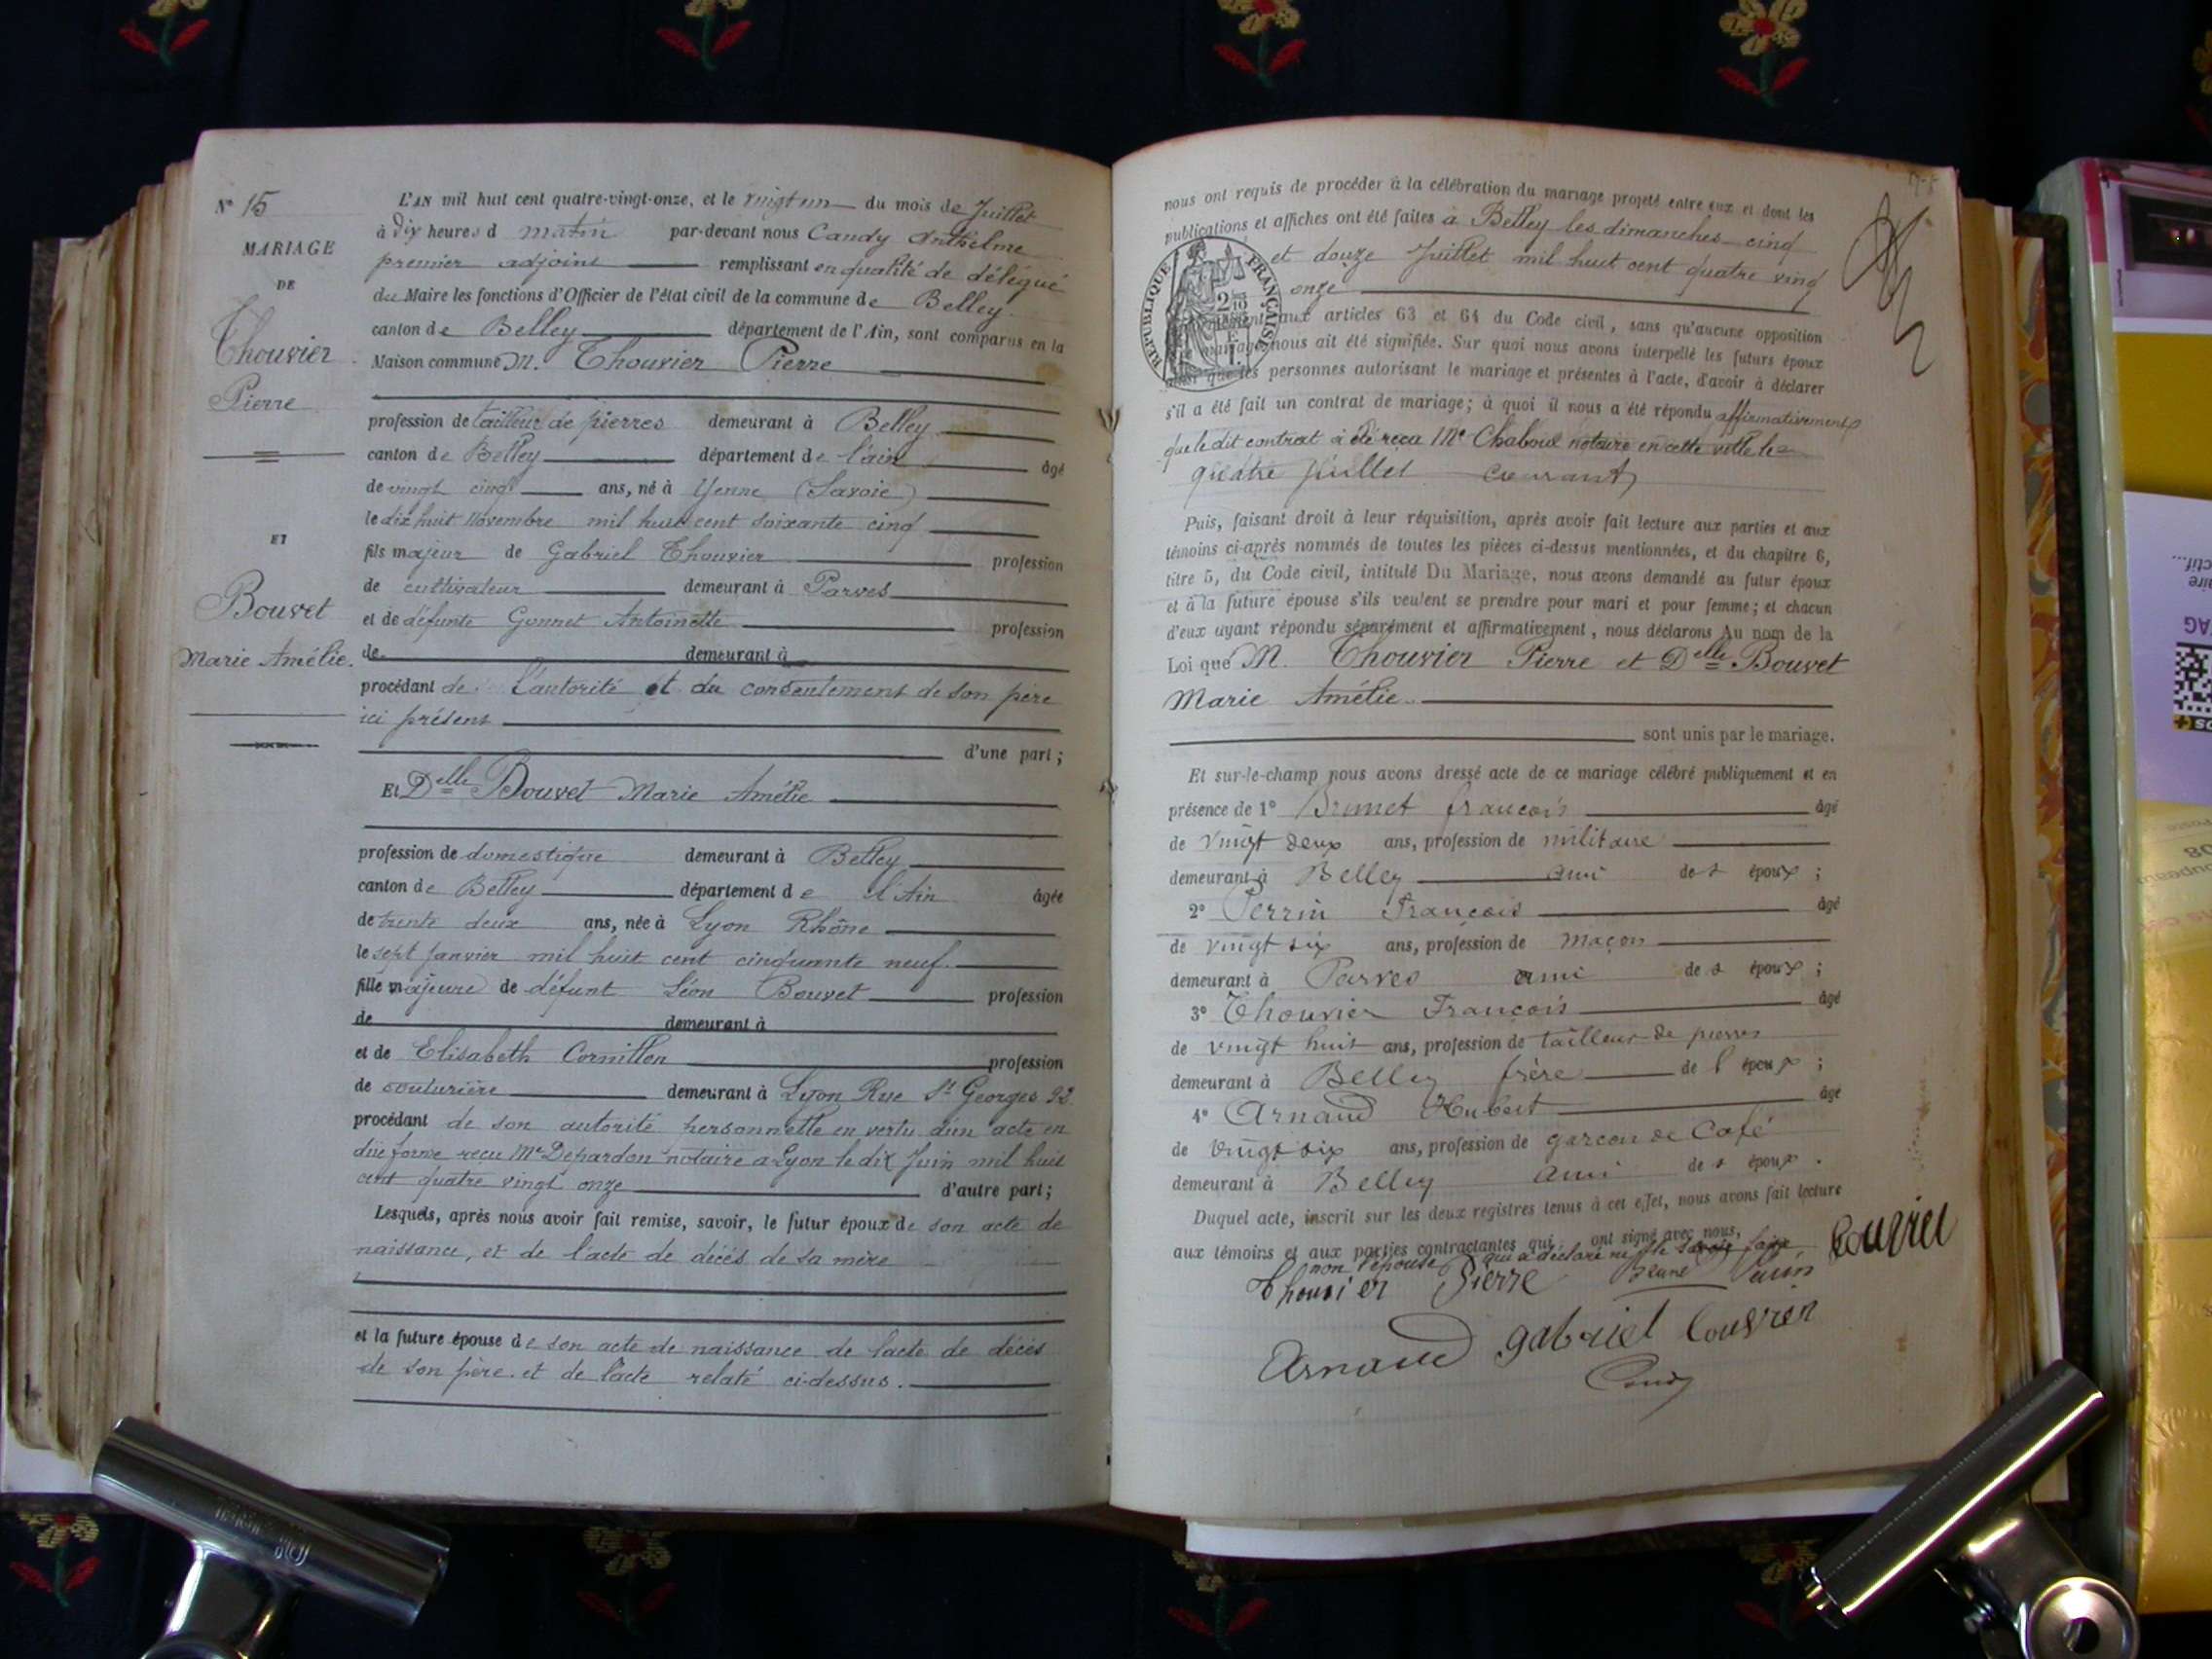 N° 15
MARIAGE
DE
Thouvier
Pierre
ET
Bouvet
Marie Amélie.
L'AN mil huit cent quatre-vingt-onze, et le vingt un du mois de Juillet
à dix heures d matin par-devant nous Candy Anthelme
premier adjoint remplissant en qualité de délégué
du Maire les fonctions d'Officier de l'état civil de la commune de Belley
canton de Belley département de l'Ain, sont comparus en la
Maison commune M. Thouvier Pierre
profession de tailleur de pierres demeurant à Belley
canton de Belley département de l'ain âgé
de vingt cinq ans, né à Yenne (Savoie)
le dix huit Novembre mil huit cent soixante cinq
fils majeur de Gabriel Thouvier profession
de cultivateur demeurant à Parves
et de défunte Gonnet Antoinette profession
de demeurant à
procédant de l'autorité et du consentement de son père
ici présent
d'une part ;
Et Delle Bouvet Marie Amélie
profession de domestique demeurant à Belley
canton de Belley département de l'Ain âgée
de trente deux ans, née à Lyon Rhône
le sept Janvier mil huit cent cinquante neuf.
fille majeure de défunt Léon Bouvet profession
de demeurant à
et de Elisabeth Cornillon profession
de couturière demeurant à Lyon Rue St Georges 92
procédant de son autorité personnelle en vertu d'un acte en
due forme reçu Me Depardon notaire a Lyon le dix Juin mil huit
cent quatre vingt onze d'autre part ;
Lesquels, après nous avoir fait remise, savoir, le futur époux de son acte de
naissance, et de l'acte de décés de sa mère
et la future épouse de son acte de naissance de l'acte de décés
de son père. et de l'acte relaté ci-dessus.
nous ont requis de procéder à la célébration du mariage projeté entre eux et dont les
publications et affiches ont été faites à Belley les dimanches cinq
et douze Juillet mil huit cent quatre vingt
onze
RÉPUBLIQUE FRANÇAISE
aux articles 63 et 64 du Code civil, sans qu'aucune opposition
mariage nous ait été signifiée. Sur quoi nous avons interpellé les futurs époux
ainsi que les personnes autorisant le mariage et présentes à l'acte, d'avoir à déclarer
s'il a été fait un contrat de mariage ; à quoi il nous a été répondu affirmativement
que le dit contrat à été reçu Me Chaboud notaire en cette ville le
quatre juillet courant
Puis, faisant droit à leur réquisition, après avoir fait lecture aux parties et aux
témoins ci-après nommés de toutes les pièces ci-dessus mentionnées, et du chapitre 6,
titre 5, du Code civil, intitulé Du Mariage, nous avons demandé au futur époux
et à la future épouse s'ils veulent se prendre pour mari et pour femme ; et chacun
d'eux ayant répondu séparément et affirmativement, nous déclarons Au nom de la
Loi que M. Thouvier Pierre et Delle Bouvet
Marie Amélie.
sont unis par le mariage.
Et sur-le-champ nous avons dressé acte de ce mariage célébré publiquement et en
présence de 1° Brunet françois âgé
de vingt deux ans, profession de militaire
demeurant à Belley ami des époux ;
2° Perrin François âgé
de vingt six ans, profession de maçon
demeurant à Parves ami des époux ;
3° Thouvier François âgé
de vingt huit ans, profession de tailleur de pierres
demeurant à Belley frère de l'époux ;
4° Arnaud Hubert âgé
de vingt six ans, profession de garcon de Café
demeurant à Belley ami des époux.
Duquel acte, inscrit sur les deux registres tenus à cet effet, nous avons fait lecture
aux témoins et aux parties contractantes qui ont signé avec nous,
non l'épouse qui a déclaré ne le savoir faire
Thouvier Pierre
Arnaud gabriel Couvrier
Candy